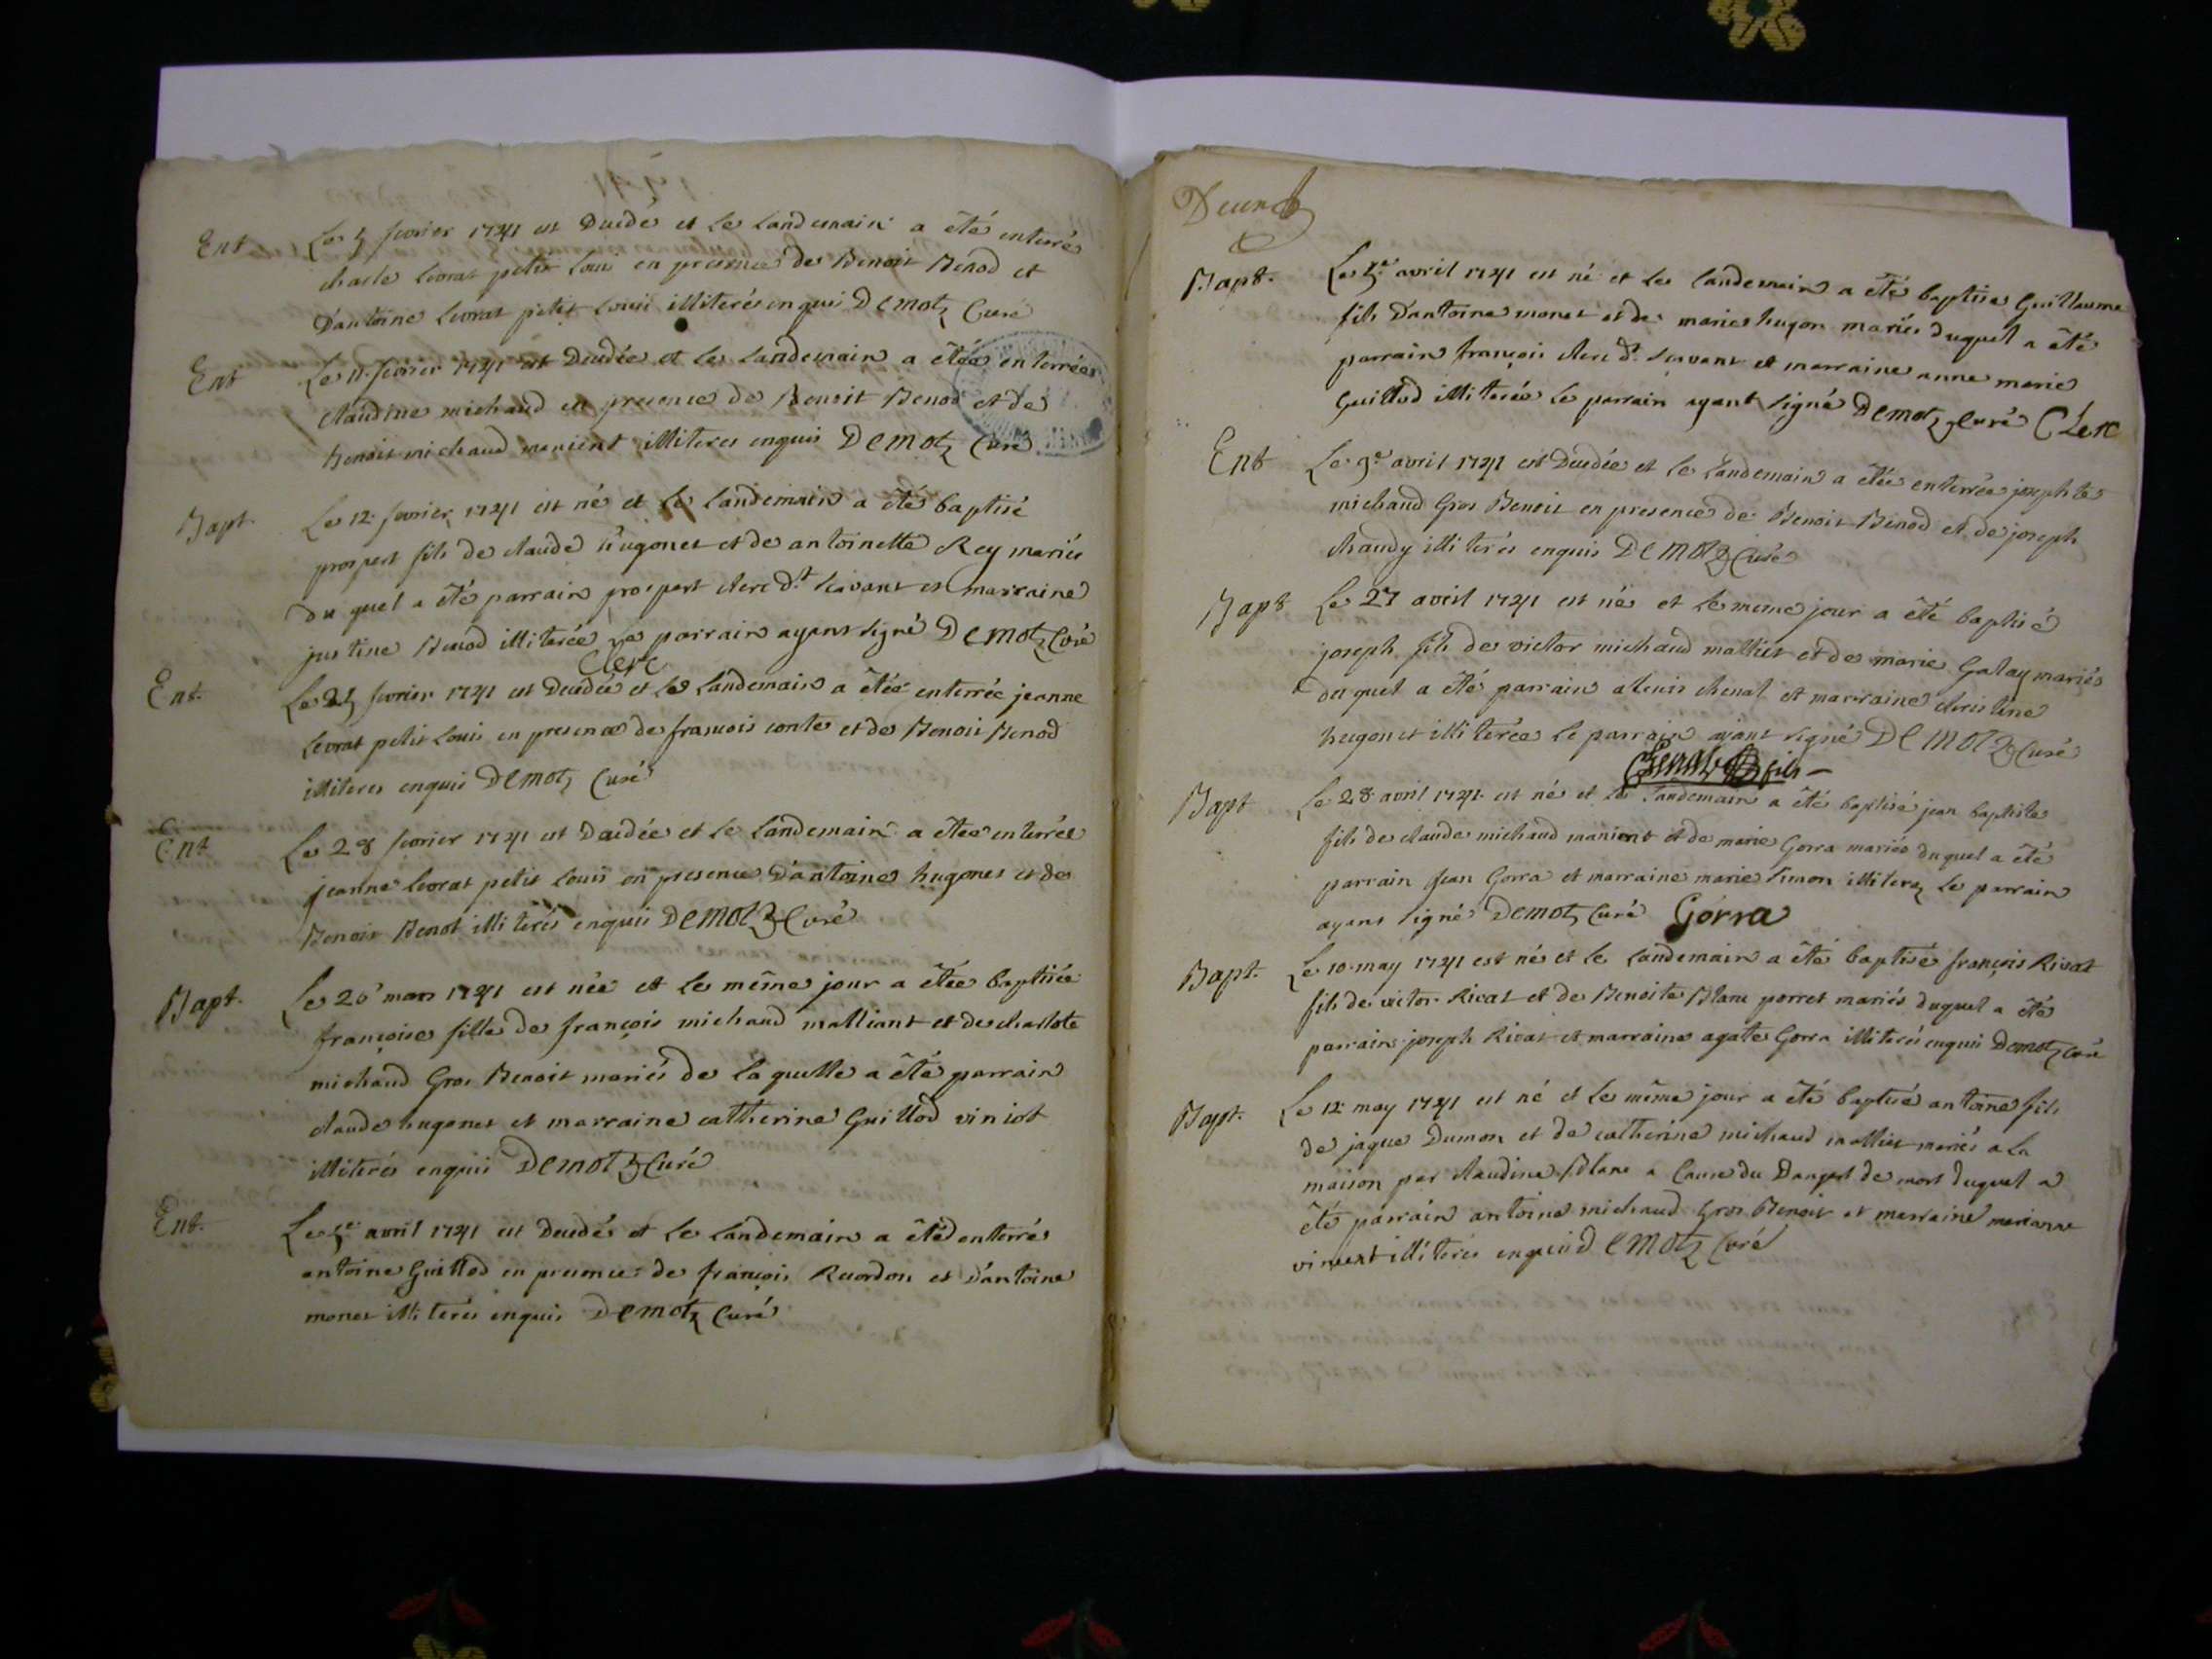 Ent Le 5 fevrier 1741 est Decedé et le landemain a êté enterré
charle levrat petit Loui en presence de Benoit Benod et
D'antoine levrat petit Louis illiterés enquis Demotz Curé
Ent Le 11 fevrier 1741 est Decedée et le landemain a êtée enterrée
claudine michaud en presence de Benoit Benod et de
benoit michaud manient illiteres enquis Demotz Curé
Bapt. Le 12 fevrier 1741 est né et le landemain a êté baptisé
prospert fils de claude hugonet et de antoinette Rey mariés
du quel a êté parrain prospert clerc dt. Savant et marraine
justine Benod illiterée le parrain ayant signé Demotz Curé
Clerc
Ent. Le fevrier 1741 est Decedée et le landemain a êtée enterrée jeanne
levrat petit Louis en presence de francois conte et de Benoit Benod
illiteres enquis Demotz Curé
Ent Le 28 fevrier 1741 est Decedée et le landemain a êtée enterrée
jeanne levrat petit Louis en presence D'antoine hugonet et de
Benoit Benot illiterés enquis Demotz Curé
Bapt. Le 26 mars 1741 est née et le même jour a êtée baptisée
françoise fille de françois michaud malliant et de charlote
michaud Gros Benoit mariés de la quelle a êté parrain
claude hugonet et marraine catherine Guillod viniot
illiterés enquis Demotz Curé
Ent. Le 5e avril 1741 est Decedé et le landemain a êté enterré
antoine Guillod en presence de françois Reordon et D'antoine
monet illiterés enquis Demotz Curé
Bapt. Le 5e avril 1741 est né et le landemain a êté baptisé Guillaume
fils D'antoine monet et de marie hugon mariés duquel a êté
parrain françois clerc dt. Savant et marraine anne marie
Guillod illiterée le parrain ayant signé Demotz Curé Clerc
Ent Le 9e avril 1741 est Decedée et le landemain a êtée enterrée josephte
michaud Gros Benoit en presence de Benoit Benod et de joseph
chaudy illiterés enquis Demotz Curé
Bapt Le 27 avril 1741 est né et le meme jour a êté baptisé
joseph fils de victor michaud malliet et de marie Galay mariés
du quel a êté parrain chenal et marraine christine
hugonet illiterée le parrain ayant signé Demotz Curé
Chenal fils
Bapt Le 28 avril 1741 est né et le landemain a êté baptisé jean baptiste
fils de claude michaud manient et de marie Gorra mariés duquel a êté
parrain jean Gorra et marraine marie Simon illiterez le parrain
ayant signé Demotz Curé Gorra
Bapt. Le 10 may 1741 est né et le landemain a êté baptisé françois Rivat
fils de victor Rivat et de Benoite Blanc porret mariés duquel a êté
parrain joseph Rivat et marraine agate Gorra illiterés enquis Demotz Curé
Bapt. Le 12 may 1741 est né et le même jour a êté baptisé antoine fils
de jaque Dumon et de catherine michaud malliet mariés a la
maison par claudine Blanc a Cause du Dangert de mort duquel a
êté parrain antoine michaud Gros Benoit et marraine marianne
illiterés enquis Demotz Curé